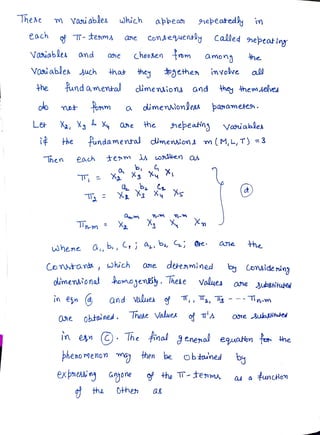 These m variables which appear repeatedly in
each of π-terms are consequently called repeating
variables and are choosen from among the
variables such that they together involve all
the fundamental dimensions and they themselves
do not form a dimensionless parameter.
Let X₂, X₃ & X₄ are the repeating variables
if the fundamental dimensions m (M, L, T) = 3
Then each term is written as
π₁ = X₂^a₁ X₃^b₁ X₄^c₁ X₁
π₂ = X₂^a₂ X₃^b₂ X₄^c₂ X₅ (d)
πn-m = X₂ X₃ X₄ Xn
where a₁, b₁, c₁; a₂, b₂, c₂; etc. are the
constants, which are determined by considering
dimensional homogeneity. These values are substituted
in eqn (d) and values of π₁, π₂, π₃ --- πn-m
are obtained. These values of π's are substituted
in eqn (c). The final general equation for the
phenomenon may then be obtained by
expressing anyone of the π-terms as a function
of the other as